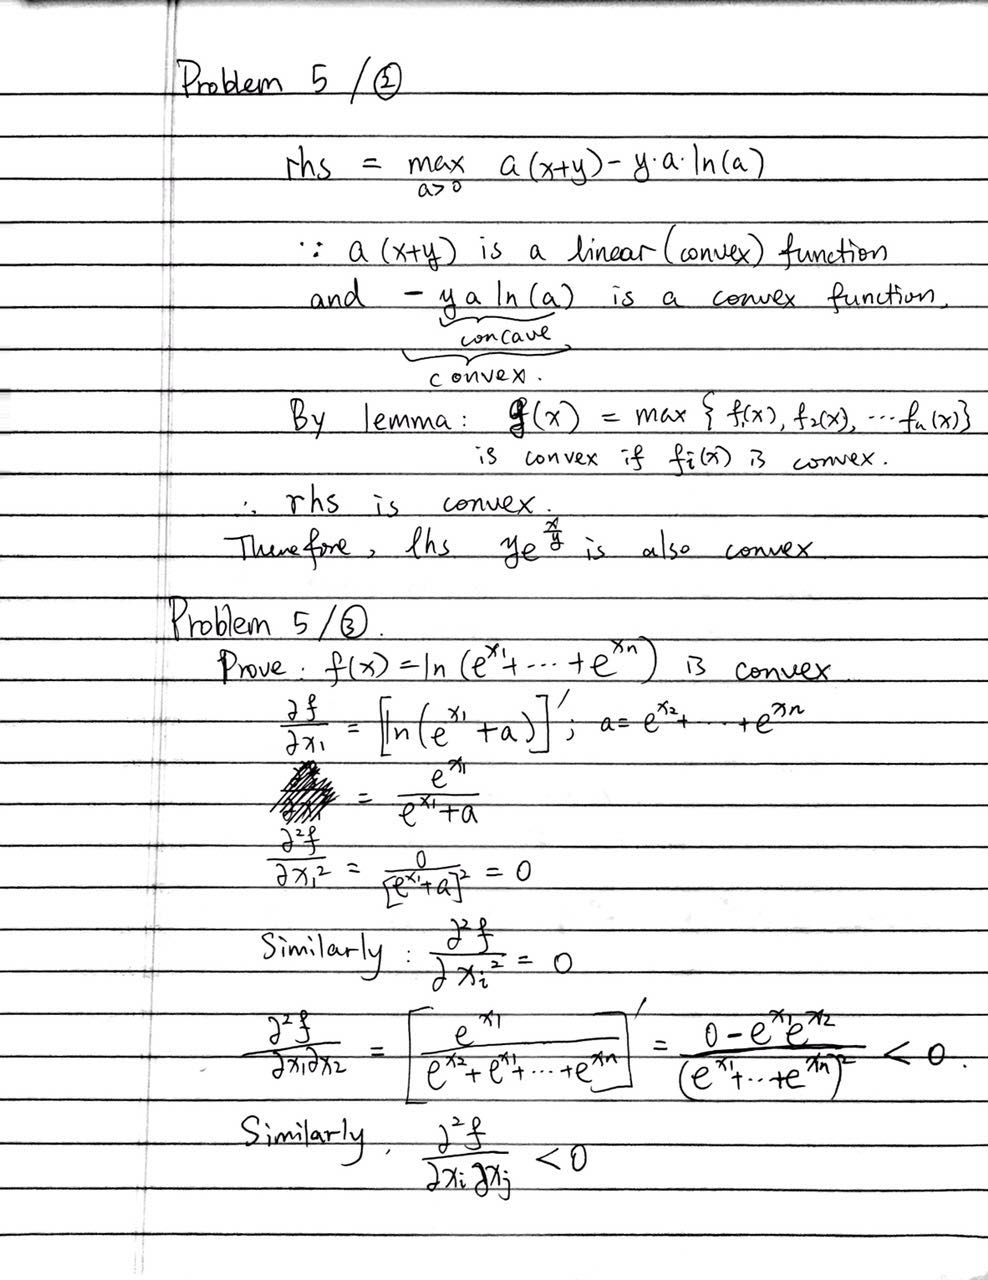 Problem 5 / ②
rhs = max a (x+y) - y·a·ln(a)
a>0
∵ a (x+y) is a linear (convex) function
and - y a ln(a) is a convex function,
concave
convex.
By lemma: g(x) = max { f₁(x), f₂(x), ··· fn(x)}
is convex if fi(x) is convex.
∴ rhs is convex.
Therefore, lhs ye^(x/y) is also convex
Problem 5 / ③.
Prove: f(x) = ln (e^x₁ + ··· + e^xn) is convex
∂f/∂x₁ = [ln(e^x₁ + a)]'; a = e^x₂ + ··· + e^xn
= e^x₁/(e^x₁ + a)
∂²f/∂x₁² = 0/[e^x₁ + a]² = 0
Similarly : ∂²f/∂xi² = 0
∂²f/∂x₁∂x₂ = [e^x₁/(e^x₂ + e^x₁ + ··· + e^xn)]' = (0 - e^x₁e^x₂)/(e^x₁ + ·· + e^xn)² < 0.
Similarly, ∂²f/∂xi∂xj < 0